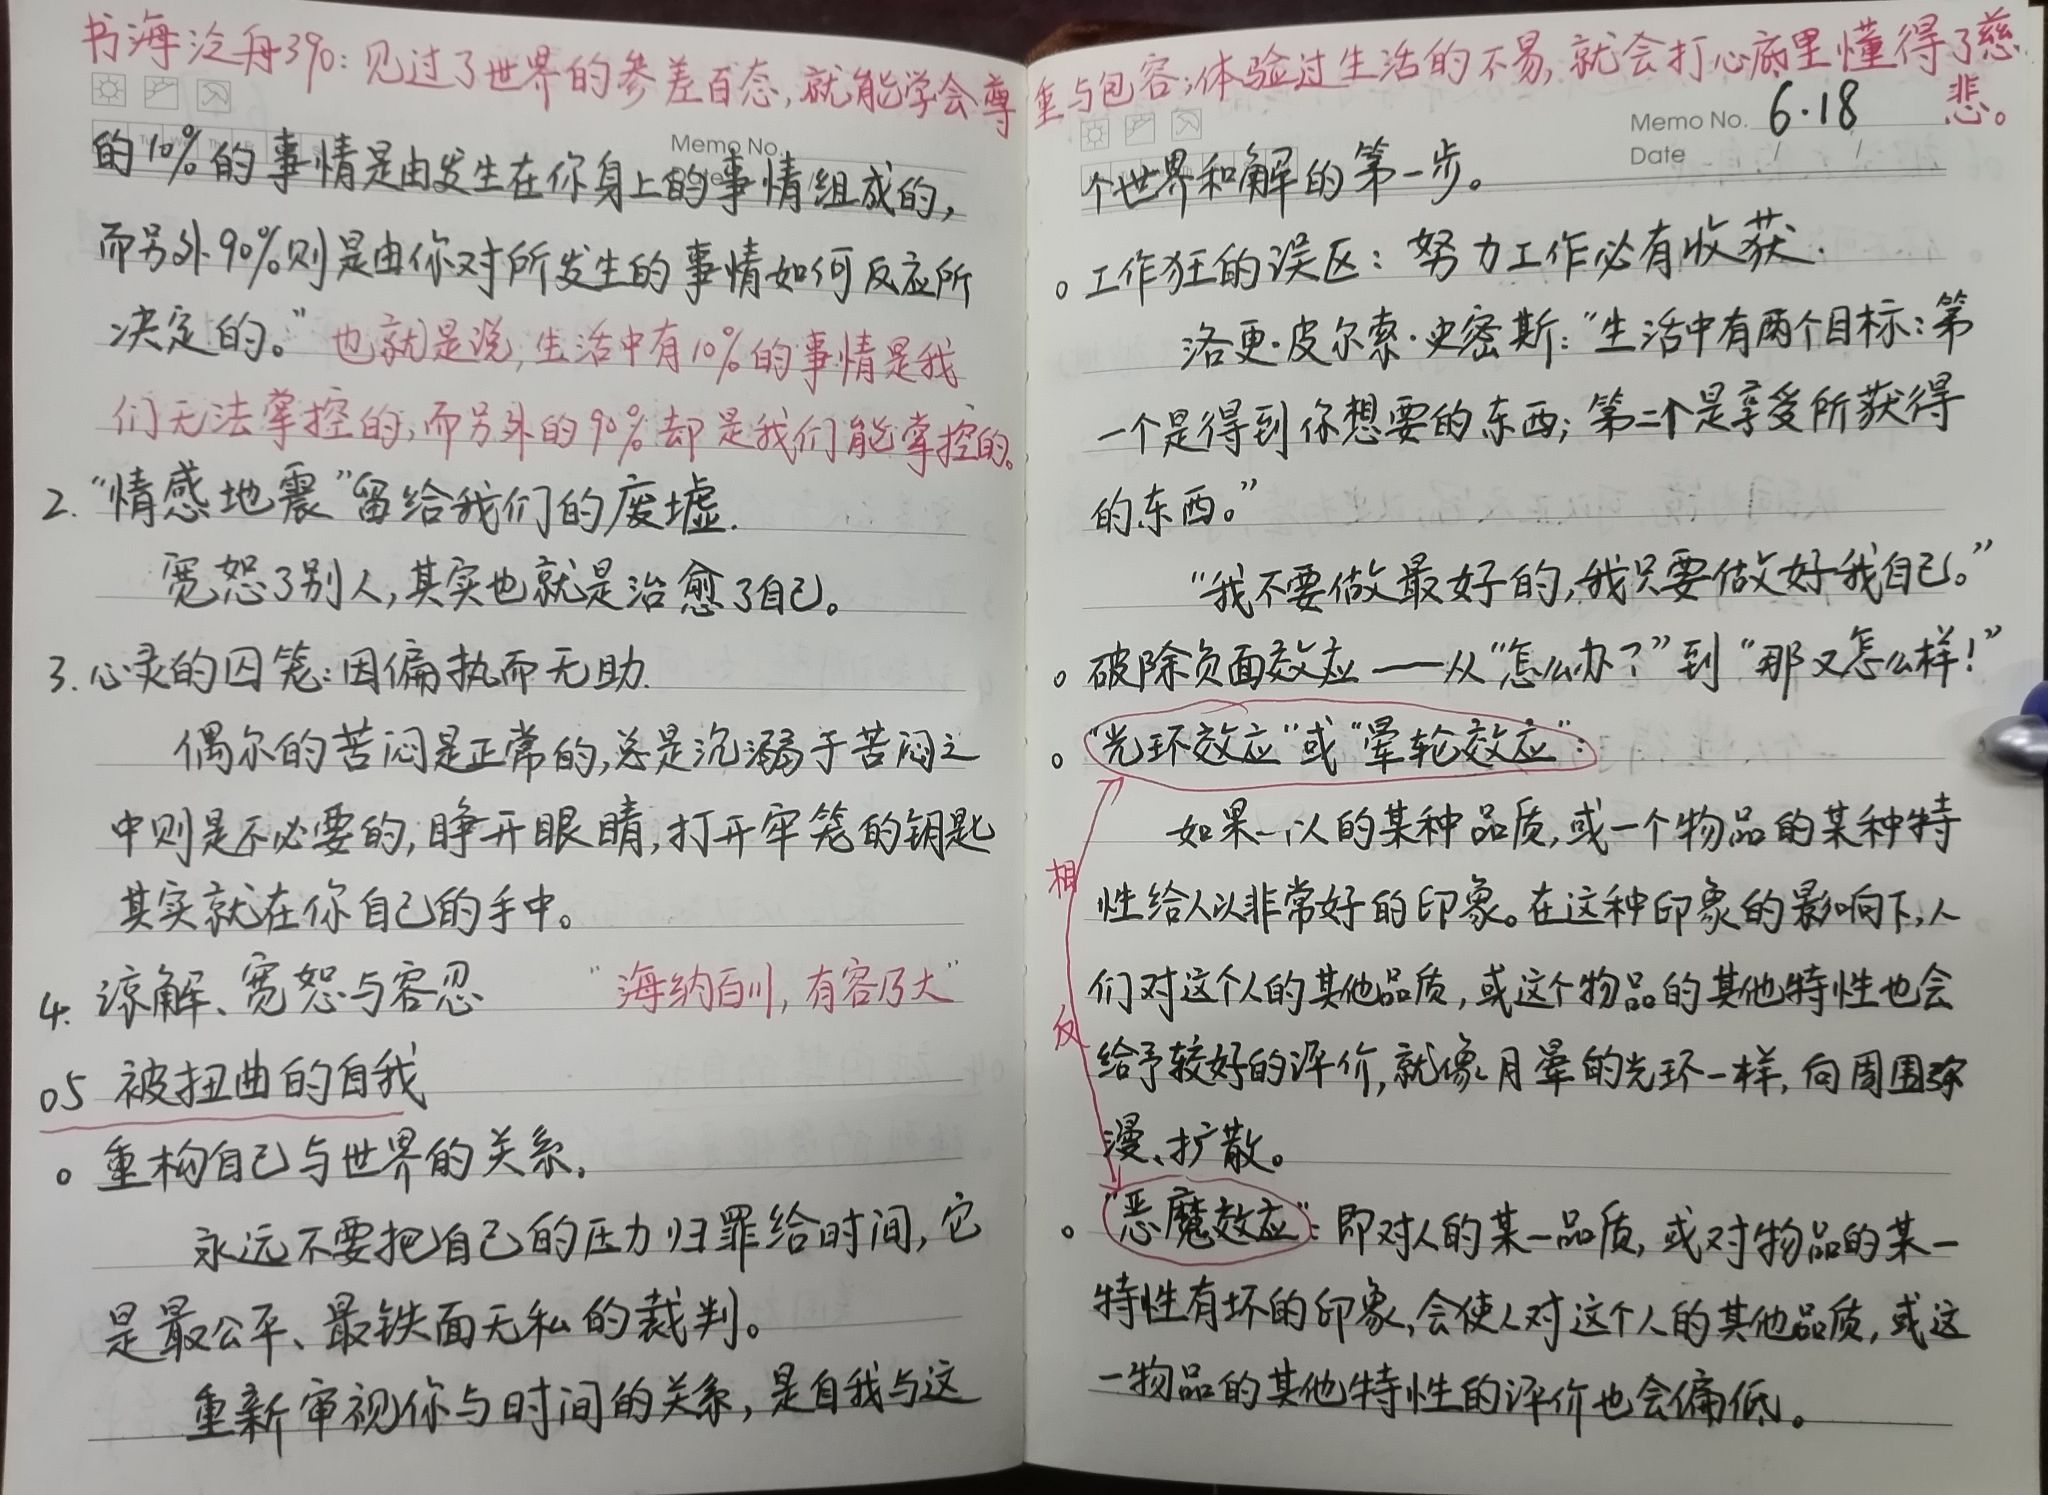 书海泛舟390：见过了世界的参差百态，就能学会尊重与包容；体验过生活的不易，就会打心底里懂得了慈悲。
Memo No.
的10%的事情是由发生在你身上的事情组成的，
而另外90%则是由你对所发生的事情如何反应所
决定的。”也就是说，生活中有10%的事情是我
们无法掌控的，而另外的90%却是我们能掌控的。
2. “情感地震”留给我们的废墟.
宽恕了别人，其实也就是治愈了自己。
3. 心灵的囚笼：因偏执而无助.
偶尔的苦闷是正常的，总是沉溺于苦闷之
中则是不必要的，睁开眼睛，打开牢笼的钥匙
其实就在你自己的手中。
4. 谅解、宽恕与容忍 “海纳百川，有容乃大”
05 被扭曲的自我
。重构自己与世界的关系.
永远不要把自己的压力归罪给时间，它
是最公平、最铁面无私的裁判。
重新审视你与时间的关系，是自我与这
Memo No. 6·18
Date / /
个世界和解的第一步。
。工作狂的误区：努力工作必有收获.
洛更·皮尔索·史密斯：“生活中有两个目标：第
一个是得到你想要的东西；第二个是享受所获得
的东西。”
“我不要做最好的，我只要做好我自己。”
。破除负面效应——从“怎么办？”到“那又怎么样！”
。“光环效应”或“晕轮效应”：
如果一个人的某种品质，或一个物品的某种特
性给人以非常好的印象。在这种印象的影响下，人
们对这个人的其他品质，或这个物品的其他特性也会
给予较好的评价，就像月晕的光环一样，向周围弥
漫、扩散。
相反
。“恶魔效应”：即对人的某一品质，或对物品的某一
特性有坏的印象，会使人对这个人的其他品质，或这
一物品的其他特性的评价也会偏低。